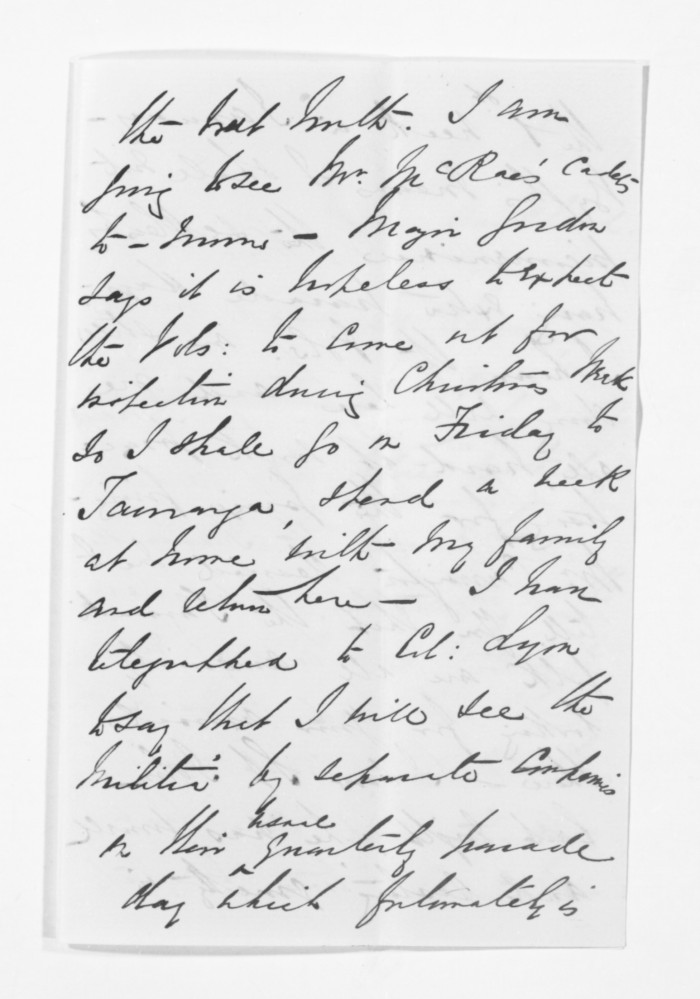 the next month. I am
going to see Mr. McRae's Cadets
to-morrow — Major Gordon
says it is hopeless to expect
the Vols: to come out for
inspection during Christmas Week
so I shall go on Friday to
Tauranga, spend a week
at home with my family
and return here — I have
telegraphed to Col: Lyon
to say that I will see the
Militia by separate Companies
on their usual quarterly parade
day which fortunately is